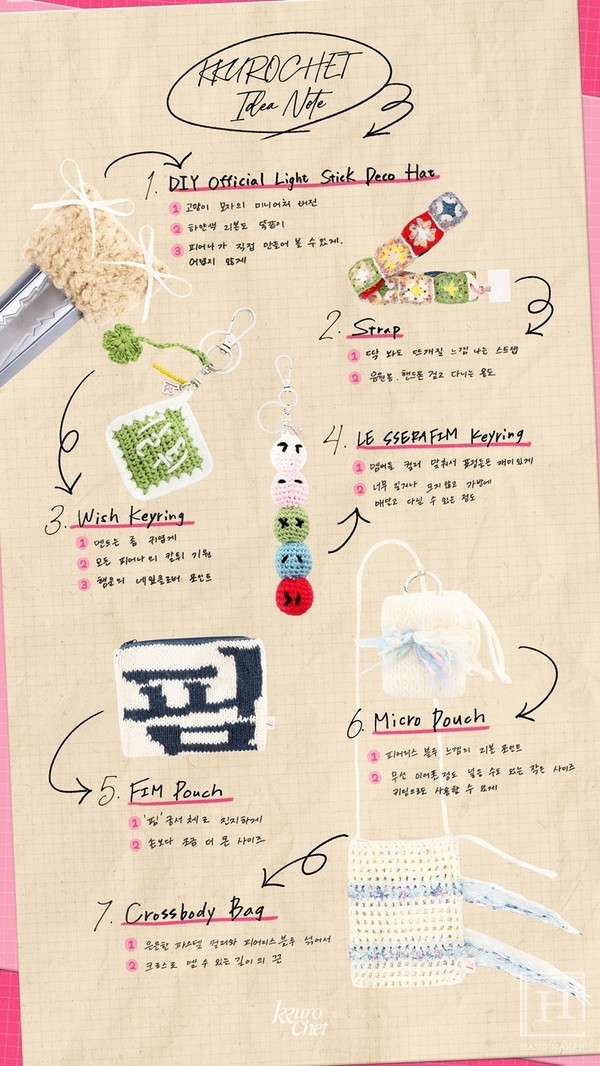 KKUROCHET
Idea Note
1. DIY Official Light Stick Deco Hat
1 고양이 모자의 미니어처 버전
2 하얀색 리본도 똑같이
3 피어나가 직접 만들어 볼 수 있게.
어렵지 않게
2. Strap
1 딱 봐도 뜨개질 느낌 나는 스트랩
2 응원봉, 핸드폰 걸고 다니는 용도
3. Wish Keyring
1 멘트는 좀 귀엽게
2 모든 피어나의 칼퇴 기원
3 행운의 네잎클로버 포인트
4. LE SSERAFIM Keyring
1 멤버들 컬러 맞춰서 표정들은 재미있게
2 너무 길거나 크지 않고 가방에
매달고 다닐 수 있는 정도
핌
5. FIM Pouch
1 '핌' 궁서체로 진지하게
2 손보다 조금 더 큰 사이즈
6. Micro Pouch
1 피어리스 블루 느낌의 리본 포인트
2 무선 이어폰 정도 넣을 수도 있는 작은 사이즈
키링으로도 사용할 수 있게
7. Crossbody Bag
1 은은한 파스텔 컬러와 피어리스 블루 섞어서
2 크로스로 멜 수 있는 길이의 끈
kkuro
chet
H